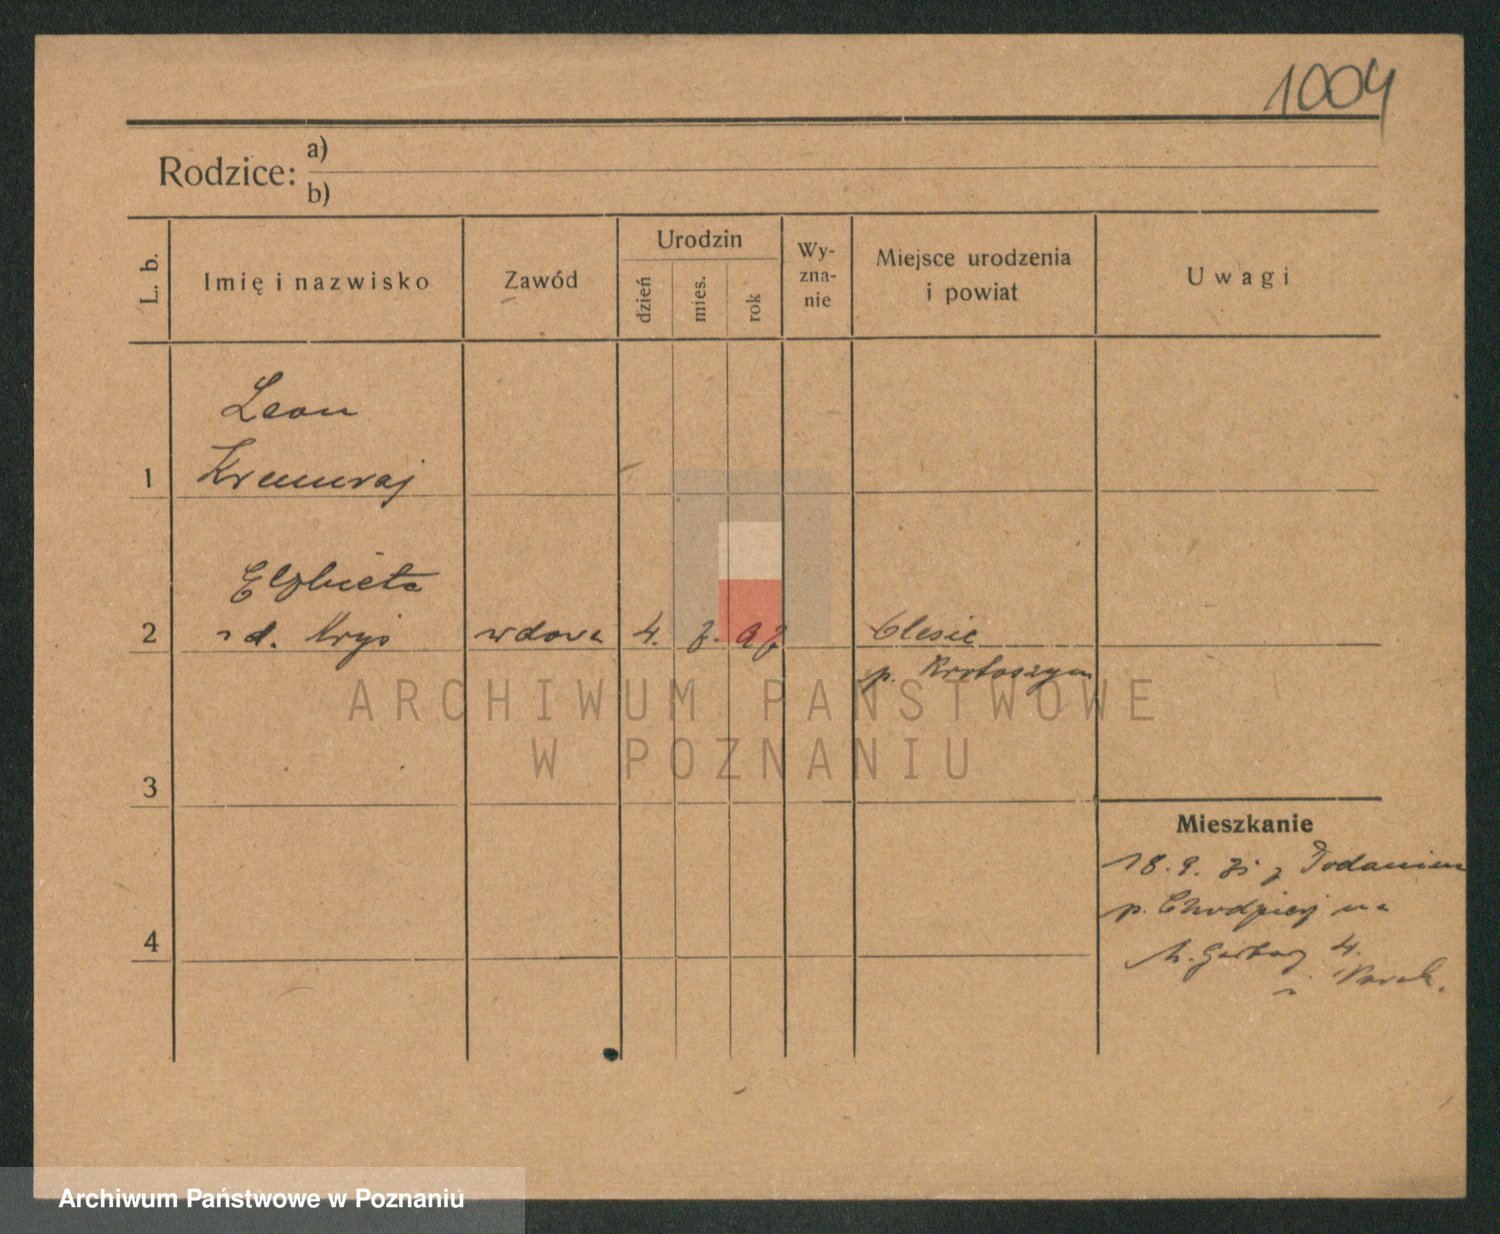 1004
Rodzice: a)
b)
L. b.
Imię i nazwisko
Zawód
Urodzin
dzień
mies.
rok
Wy-
zna-
nie
Miejsce urodzenia
i powiat
Uwagi
Leon
1
Elżbieta
2 d. wdowa 4.
p. Krotoszyn
3
Mieszkanie
18. 9. z
p. Chodzież na
4
4.
ARCHIWUM PAŃSTWOWE
W POZNANIU
Archiwum Państwowe w Poznaniu